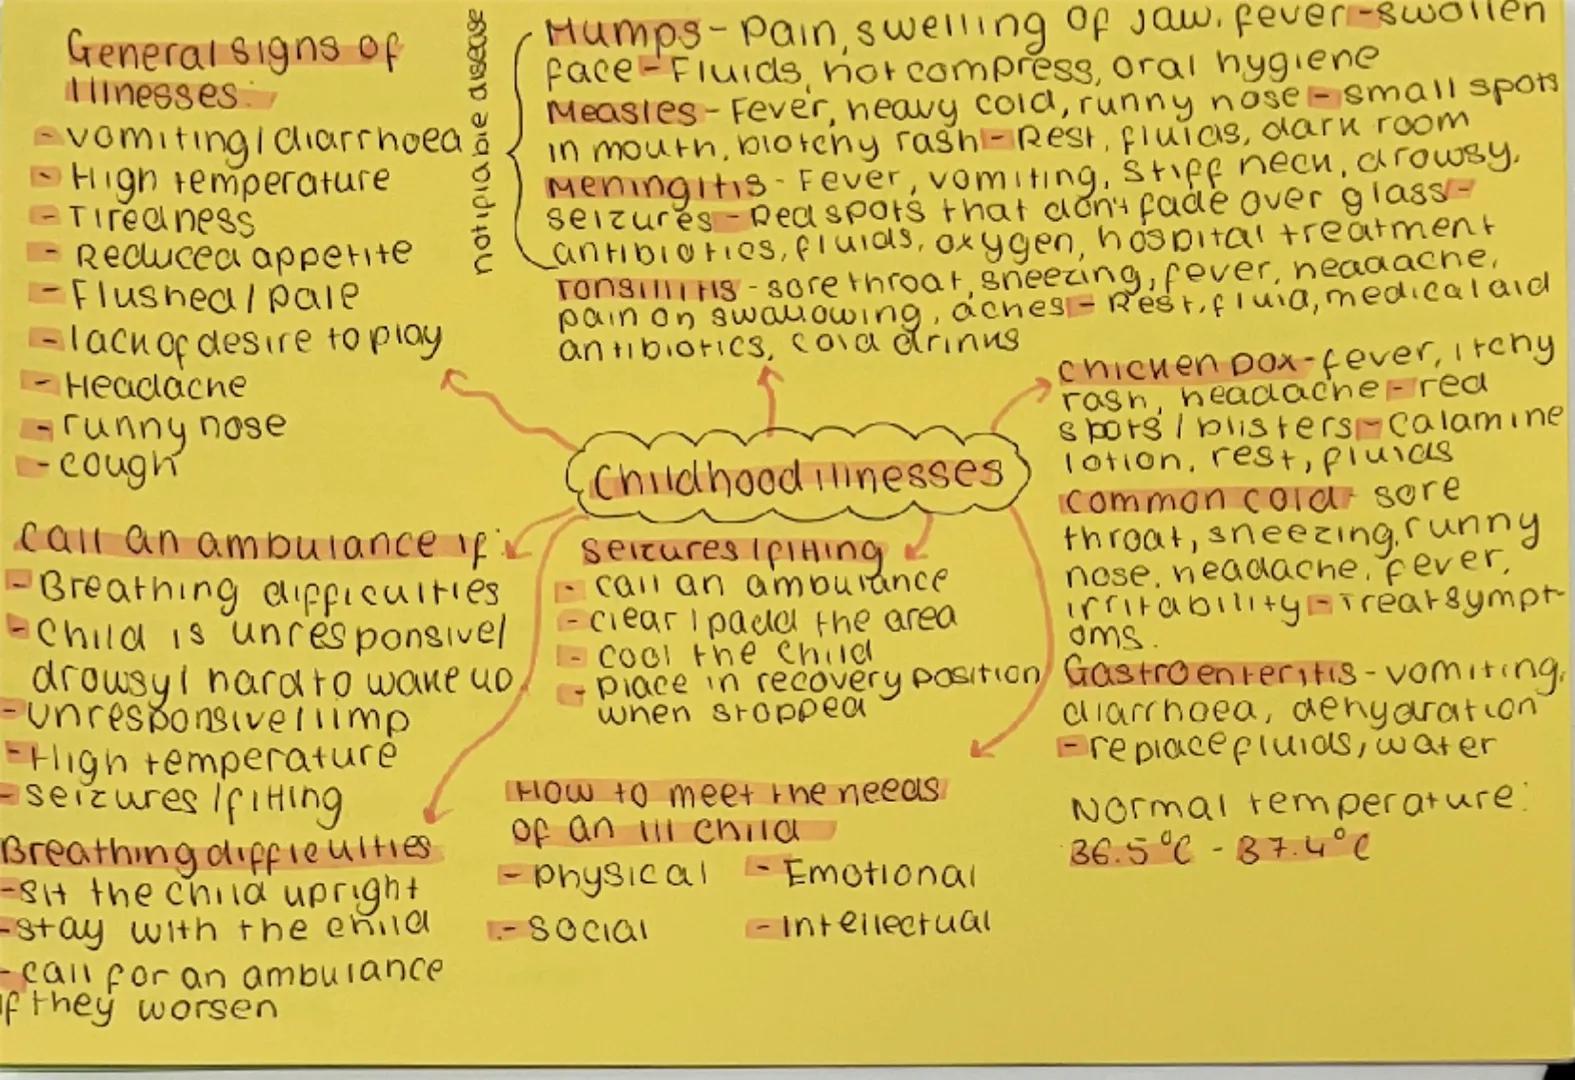 General signs of
illnesses:
- vomiting / diarrhoea
- High temperature
- Tiredness
- Reduced appetite
- Flushed / pale
- lack of desire to play
- Headache
- runny nose
- cough
notifiable disease
Mumps - Pain, swelling of jaw, fever - swollen
face - Fluids, hot compress, oral hygiene
Measles - Fever, heavy cold, runny nose - small spots
in mouth, blotchy rash - Rest, fluids, dark room
Meningitis - Fever, vomiting, stiff neck, drowsy,
seizures - Red spots that don't fade over glass -
antibiotics, fluids, oxygen, hospital treatment
Tonsillitis - sore throat, sneezing, fever, headache,
pain on swallowing, aches - Rest, fluid, medical aid
antibiotics, cold drinks
chicken pox - fever, itchy
rash, headache - red
spots / blisters - calamine
lotion, rest, fluids
common cold - sore
throat, sneezing, runny
nose, headache, fever,
irritability - Treat sympt-
oms.
Gastroenteritis - vomiting,
diarrhoea, dehydration
- replace fluids, water
Normal temperature:
36.5°C - 37.4°C
Childhood illnesses
Call an ambulance if:
- Breathing difficulties
- Child is unresponsive/
drowsy / hard to wake up
- unresponsive / limp
- High temperature
- seizures / fitting
Seizures / fitting
- call an ambulance
- clear / padd the area
- cool the child
- place in recovery position
when stopped
Breathing difficulties
- sit the child upright
- stay with the child
- call for an ambulance
if they worsen
How to meet the needs
of an ill child
- physical - Emotional
- social - Intellectual